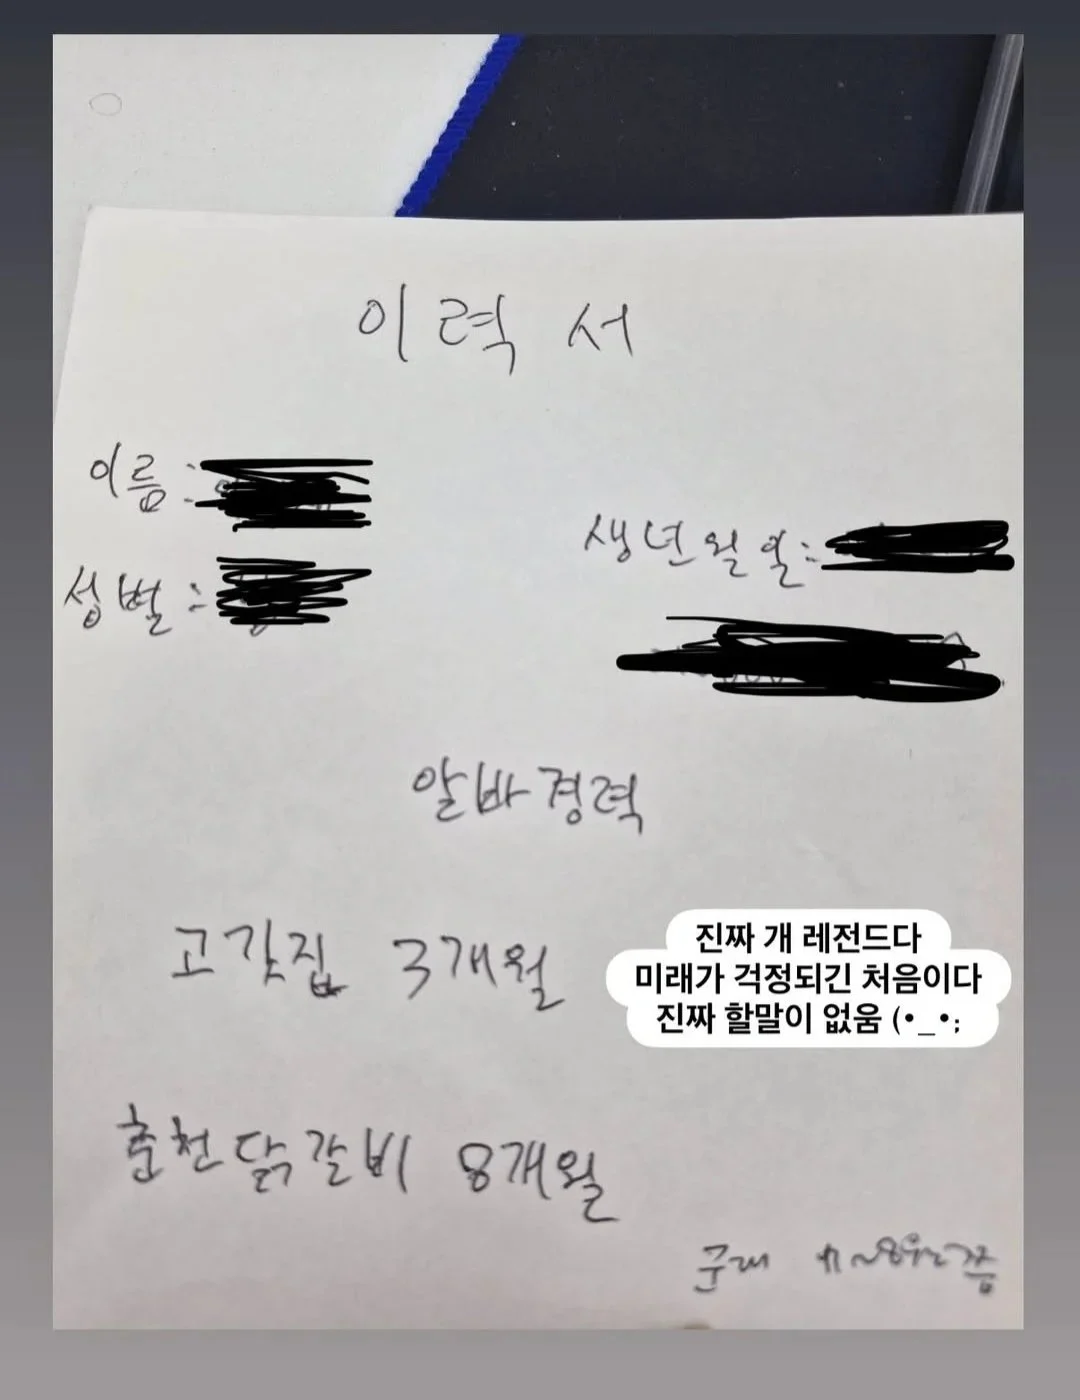 이력서
이름:
성별:
생년월일:
알바경력
고깃집 3개월
진짜 개 레전드다
미래가 걱정되긴 처음이다
진짜 할말이 없움 (•_•;
춘천닭갈비 8개월
군대